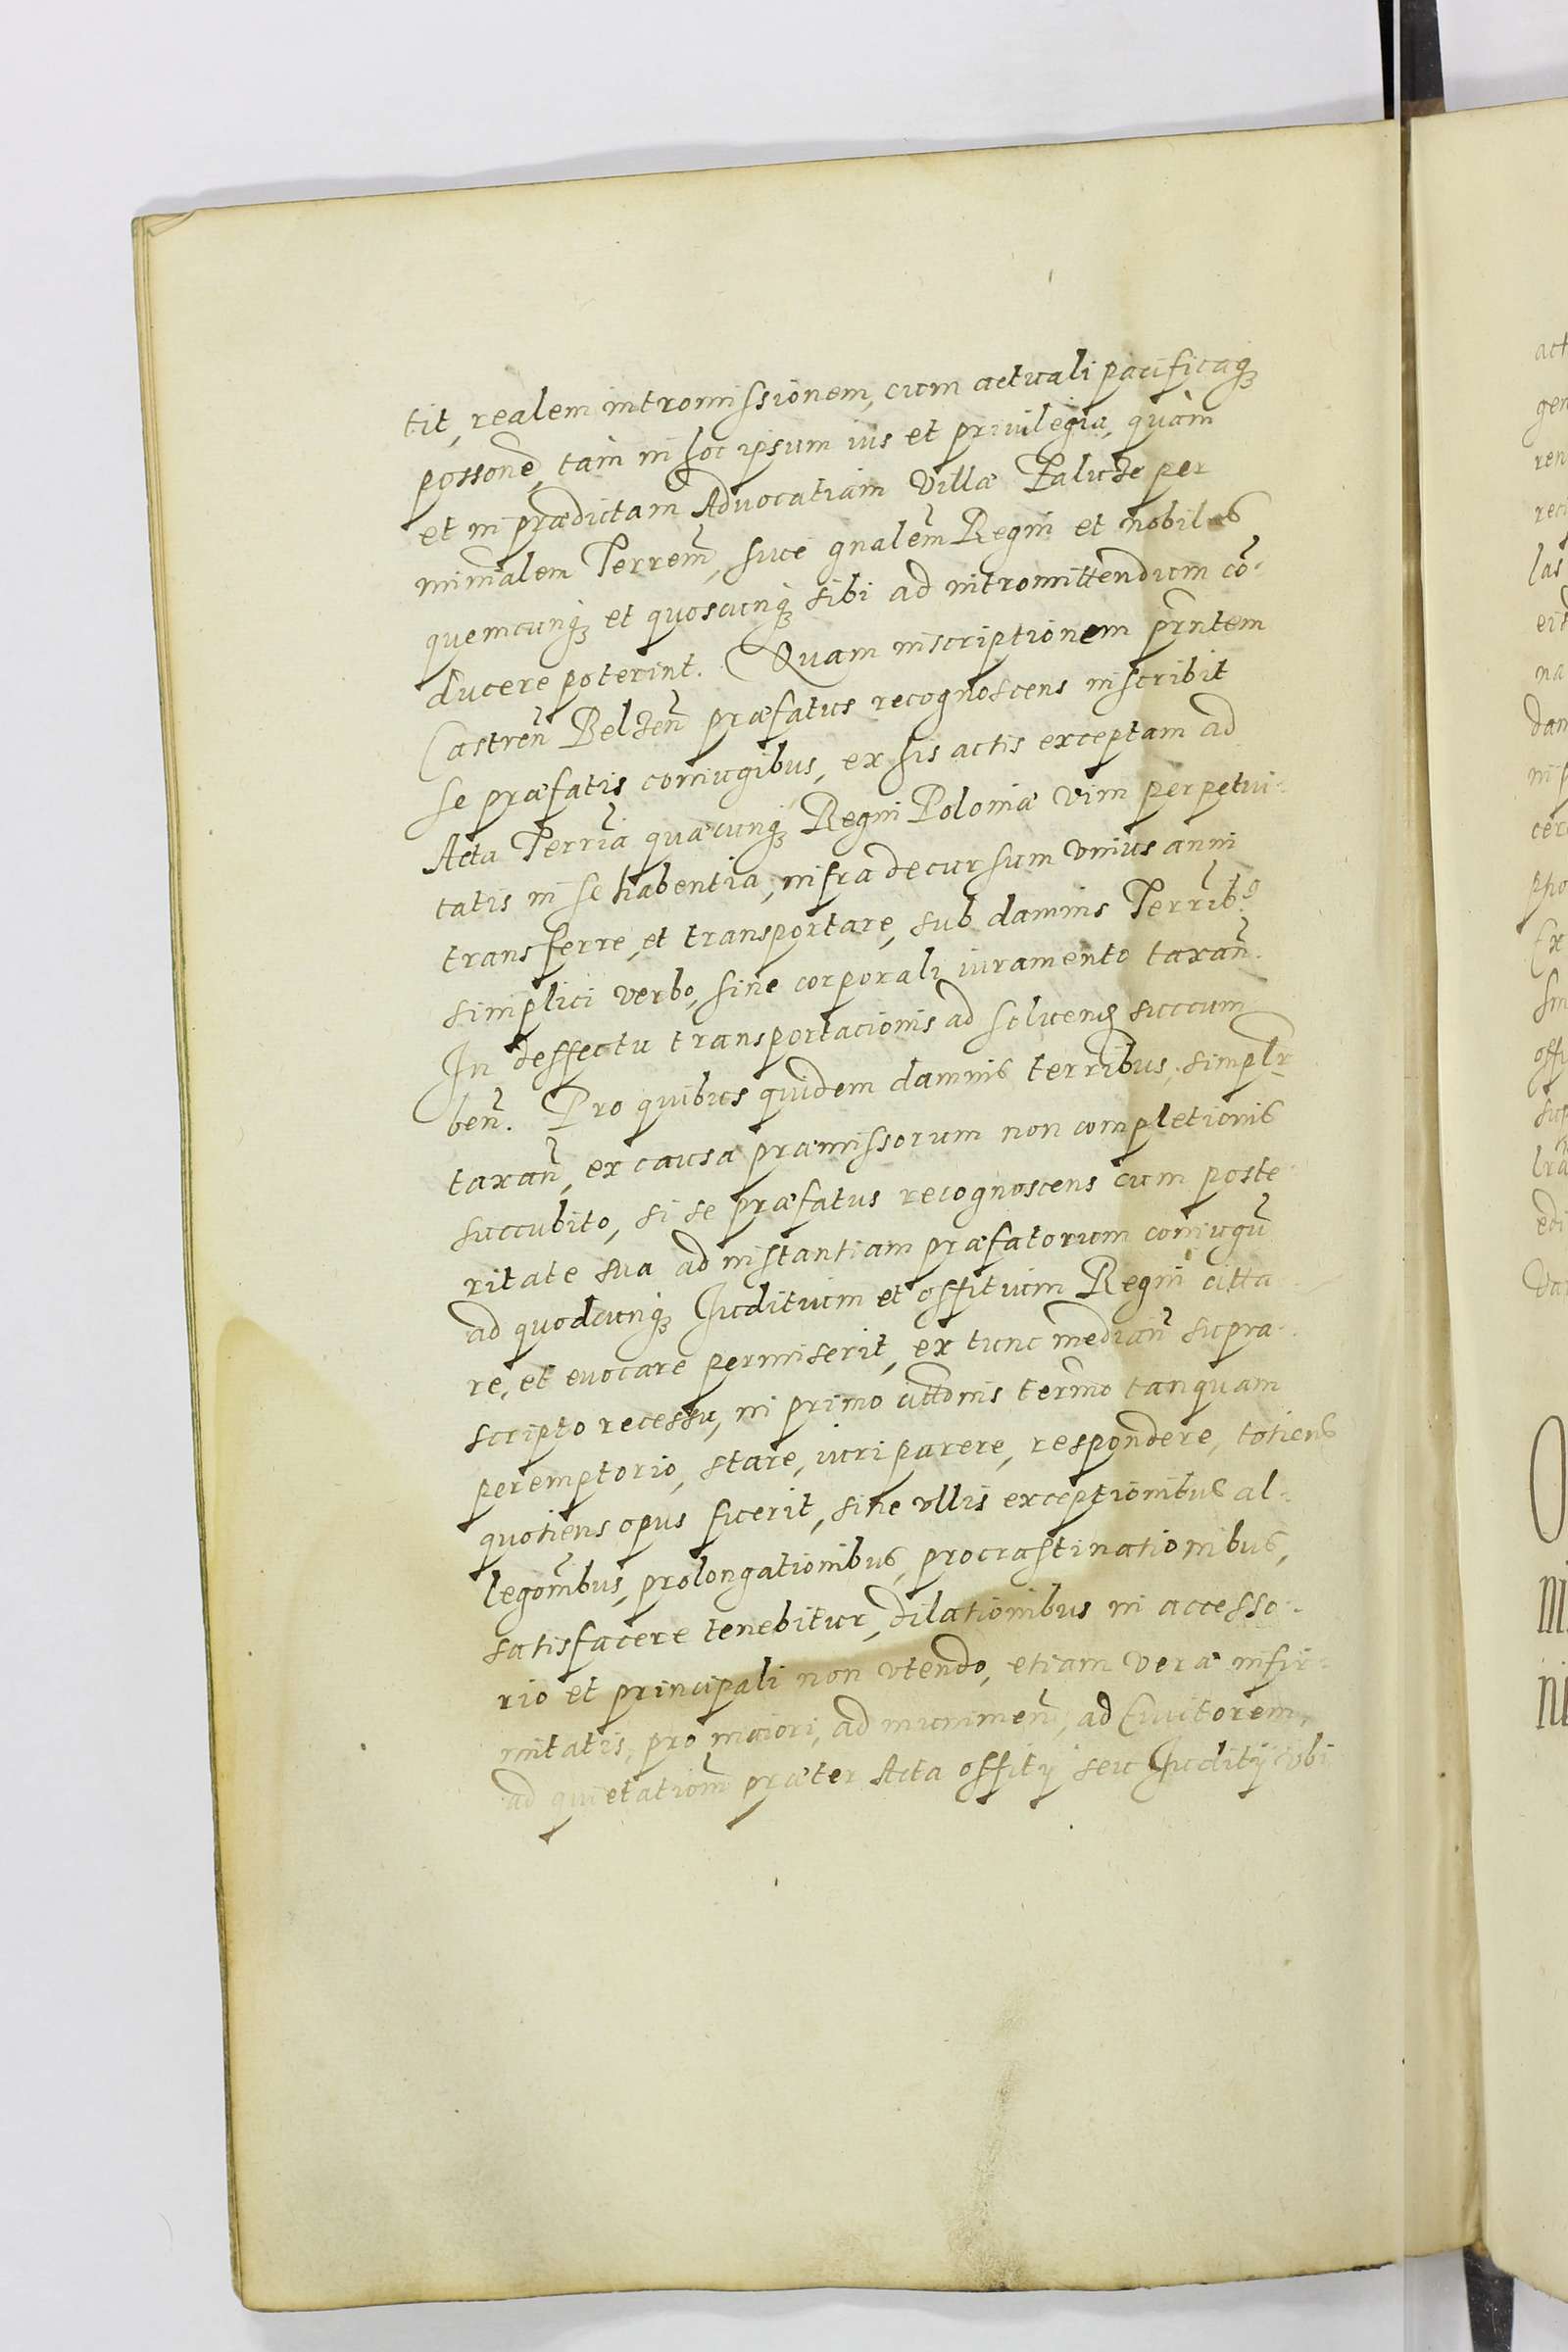 tit, realem intromissionem, cum actuali pacificaq₃
possone, tam in hoc ipsum ius et privilegia, quàm
et in prædictam Advocatiam Villæ Palucze per
minralem Terrem̃, suce gnalem̃ Regni et nobiles
quemcunq₃ et quoscunq₃ sibi ad intromittendum cõ-
ducere poterint. Quam inscriptionem prñtem
Castreñ Belzeñ præfatus recognoscens inscribit
se præfatis coniugibus, ex his actis exceptam ad
Acta Terrĩa quæcunq₃ Regni Poloniæ vim perpetui-
tatis in se habentia, infra decursum vnius anni
transferre, et transportare, sub damnis Terrib9
simplici verbo, sine corporali iuramento taxañ.
In deffectu transportacionis ad solvend succum
beñ. Pro quibus quidem damnis terribus, simplr
taxañ, ex causa præmissorum non completionis
succubito, si se præfatus recognoscens cum poste-
ritate sua ad instantiam præfatorum coniugũ
ad quodcunq₃ Iuditium et offitium Regni citta-
re, et evocare permiserit, ex tunc mediañ supra-
scripto recessu, in primo cittõnis termõ tanquam
peremptorio, stare, iuri parere, respondere, totiens
quotiens opus fuerit, sine vllis exceptionibus al-
legonibus, prolongationibus, procrastinationibus,
satisfacere tenebitur, dilationibus in accesso-
rio et principali non vtendo, etiam veræ infir-
mitatis, pro maiori, ad munimeñ, ad Evictorem,
ad quietationẽ præter Acta offitÿ seu Iuditÿ vbi
act
gen
ren
las
na
dam
Ex